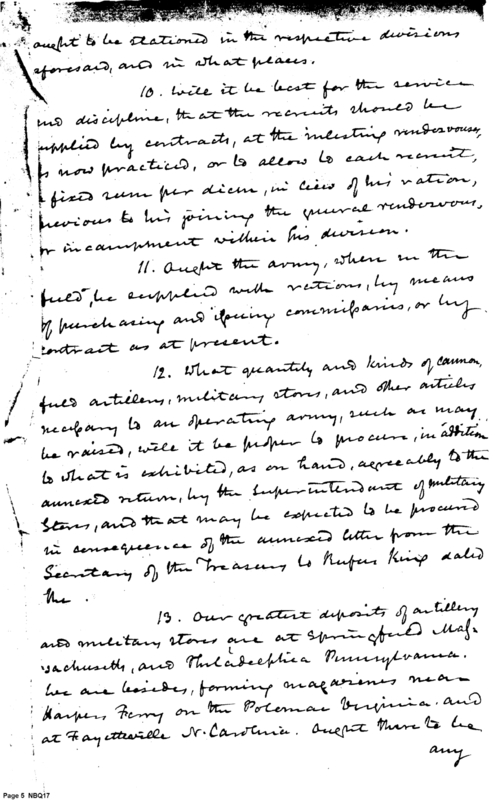 ought to be stationed in the respective divisions
aforesaid, and in what places.
10. Will it be best for the service
and discipline, that the recruits should be
supplied by contracts, at the inlisting rendezvouses,
as now practiced, or to allow to each recruit,
a fixed sum per diem, in lieu of his ration,
previous to his joining the general rendezvous,
or incampment within his division.
11. Ought the army, when in the
field, be supplied with rations, by means
of purchasing and issuing commissaries, or by
contract as at present.
12. What quantity and kinds of cannon,
field artillery, military stores, and other articles
necessary to an operating army, such as may
be raised, will it be proper to procure, in addition
to what is exhibited, as on hand, agreeably to the
annexed return, by the Superintendant of military
Stores, and that may be expected to be procured
in consequence of the annexed letter from the
Secretary of the Treasury to Rufus King dated
the .
13. Our greatest deposits of artillery
and military stores are at Springfield Mas-
sachusetts, and Philadelphia Pennsylvania.
We are besides, forming magazines near
Harpers Ferry on the Potomac Virginia. and
at Fayetteville N. Carolina. Ought there to be
any
Page 5 NBQ17